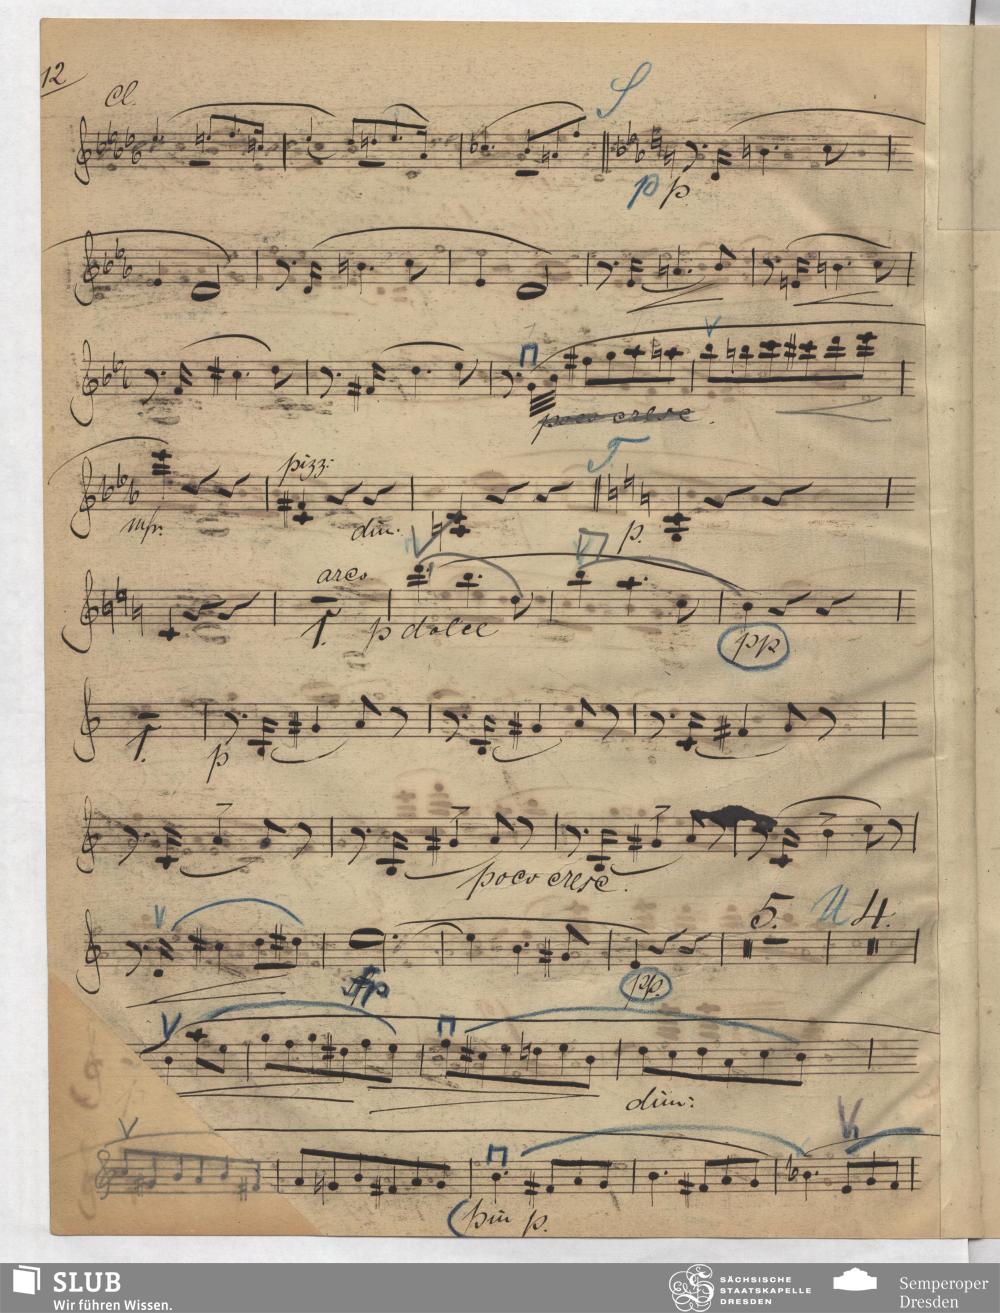 12
Cl.
S
p p
poco cresc.
mfr.
pizz:
dim:
T
p.
arco
1.
p dolce
pp
1.
p
poco cresc.
5.
U
4.
fp
pp.
dim:
più p.
SLUB
Wir führen Wissen.
SÄCHSISCHE
STAATSKAPELLE
DRESDEN
Semperoper
Dresden